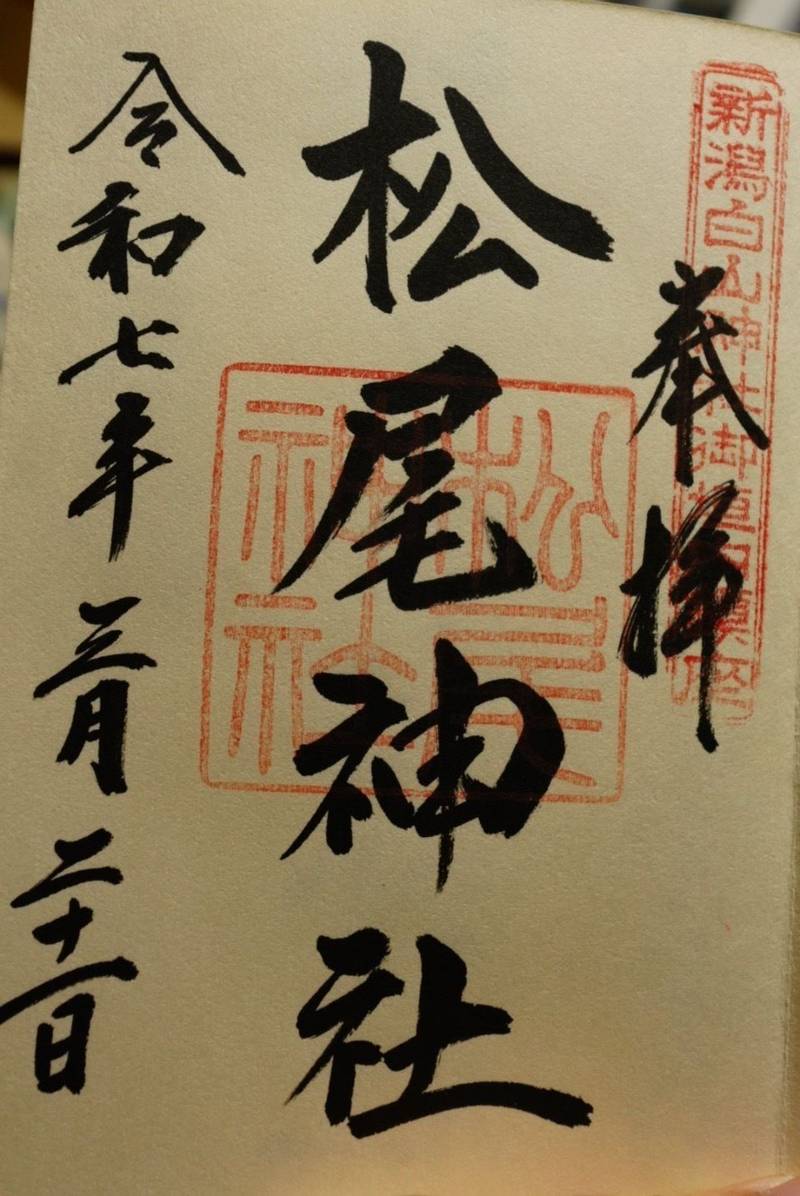 新潟白山神社御垣内鎮座
奉拝
松尾神社
松尾神社
令和七年三月二十一日